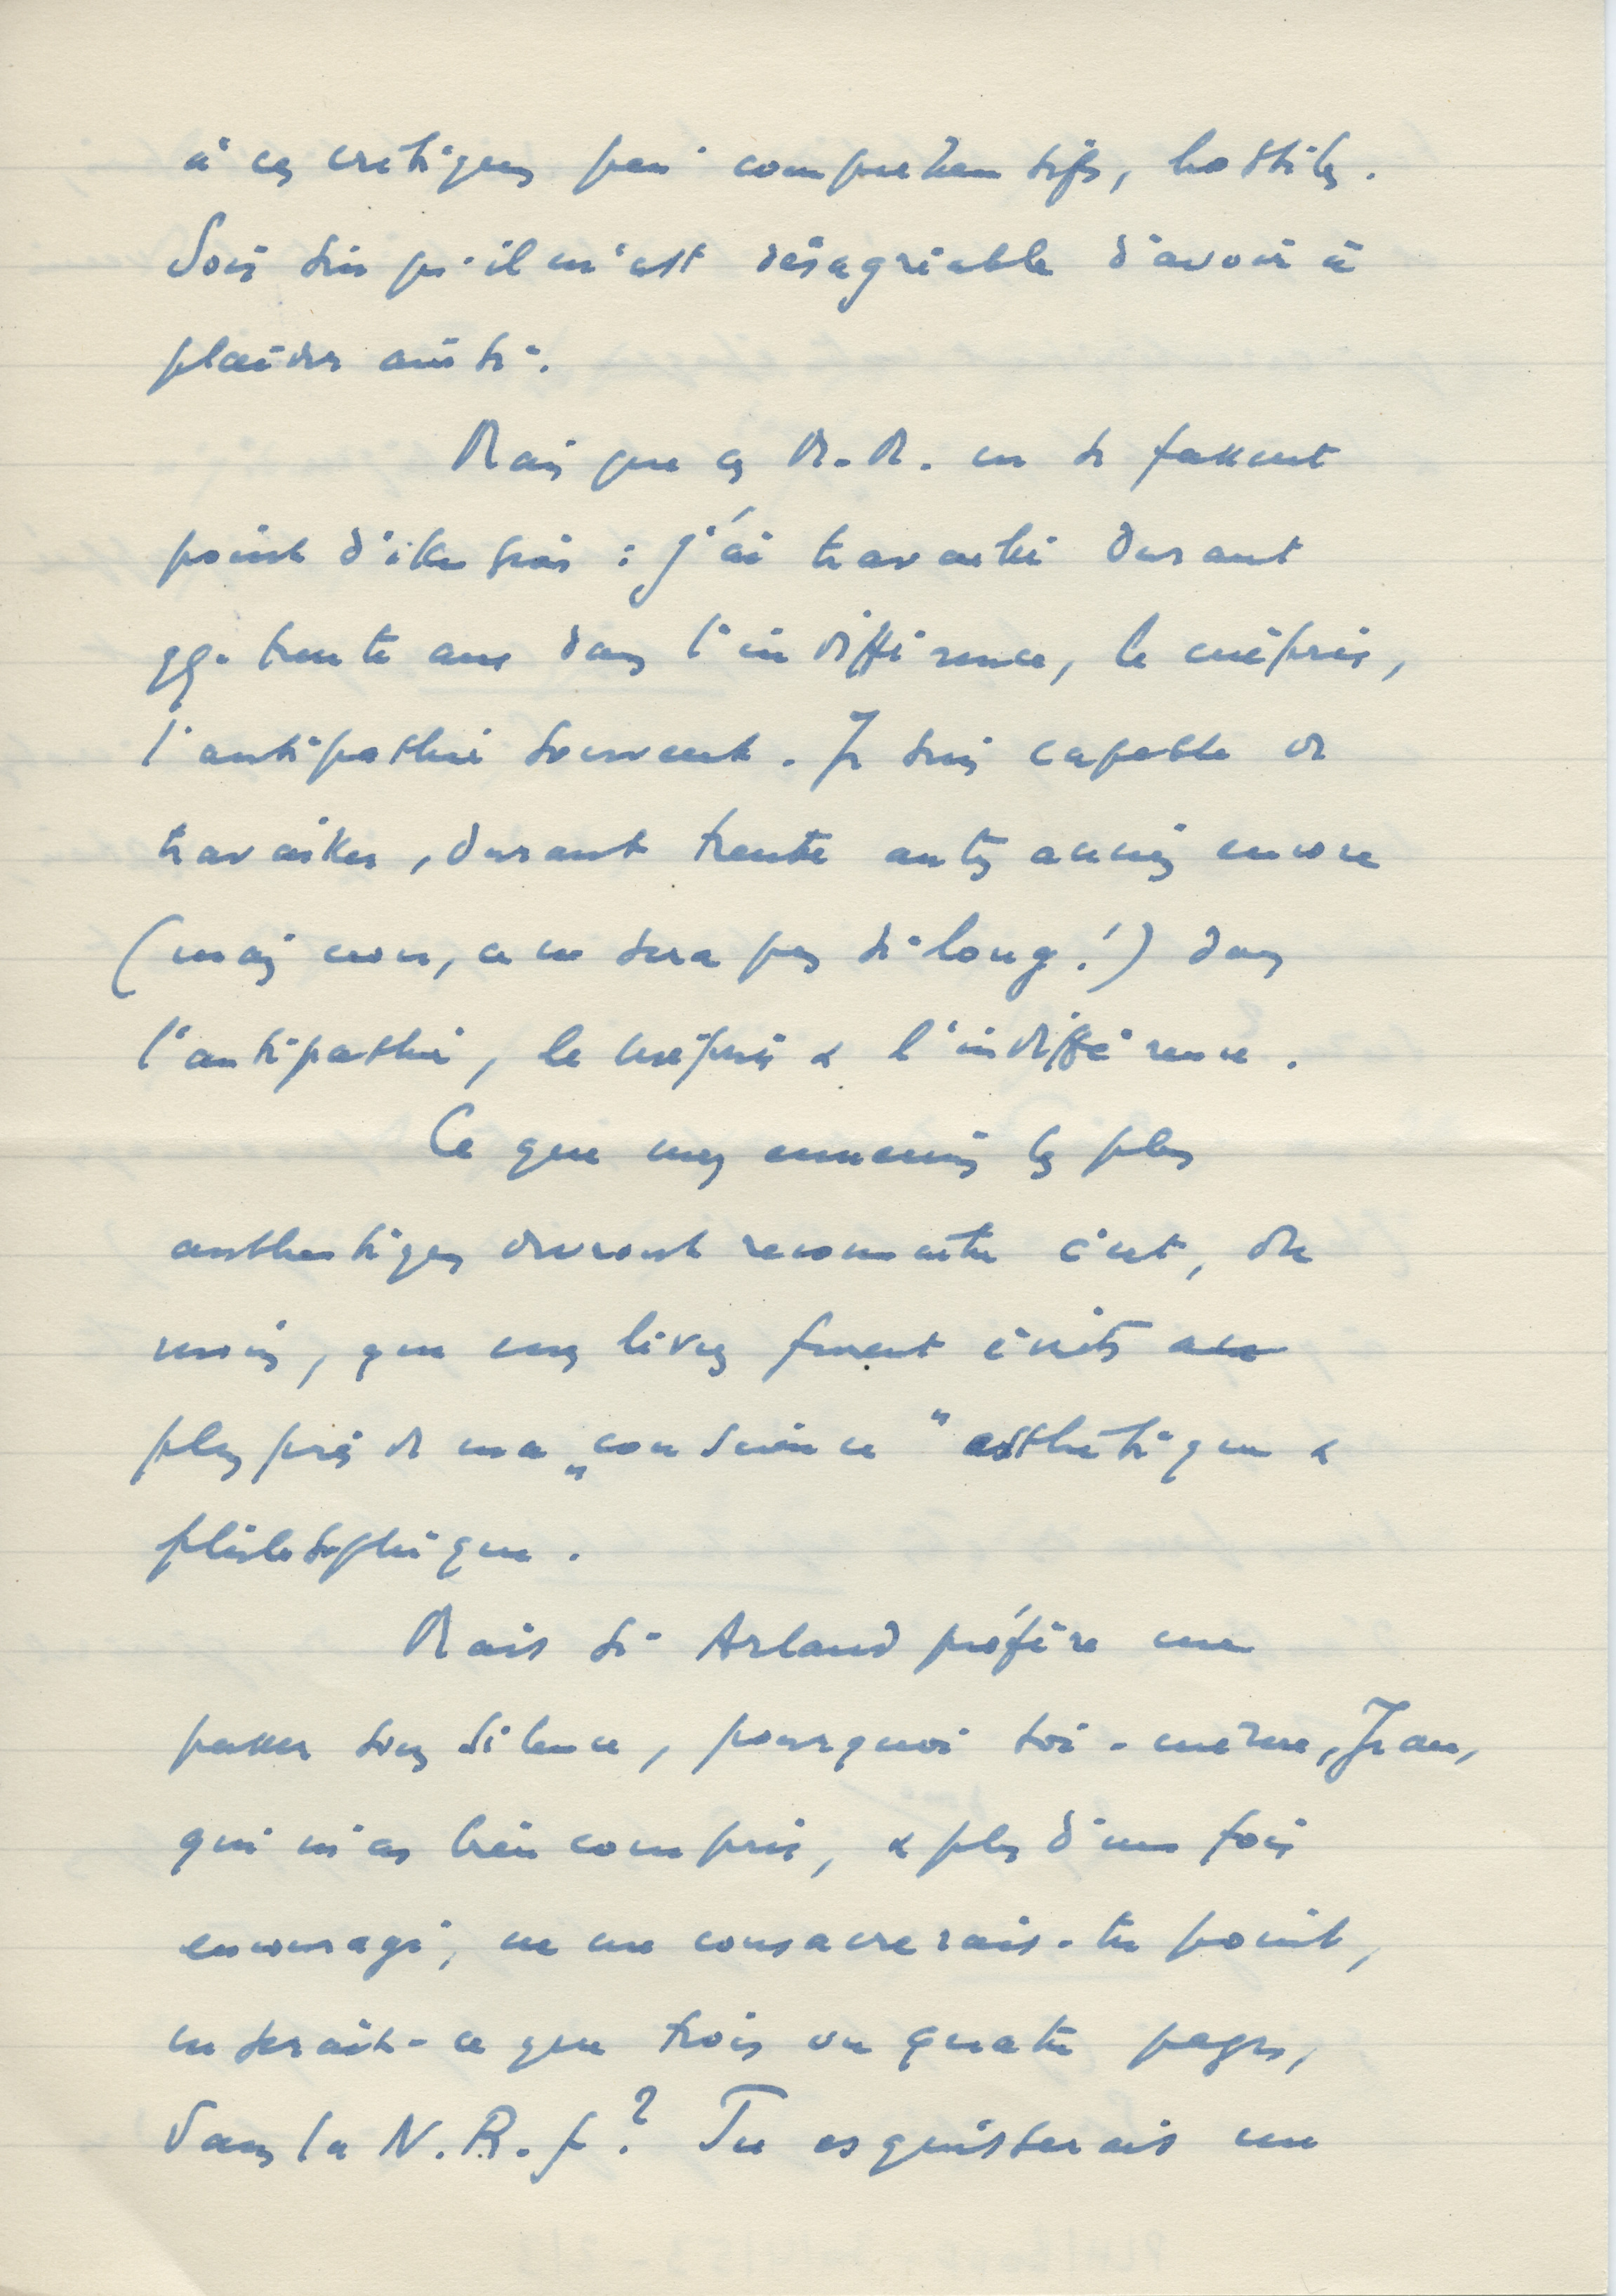 à ces critiques peu compréhensifs, hostiles.
Sois sûr qu'il m'est désagréable d'avoir à
plaider ainsi.
Mais que ces M.M. ne se fassent
point d'illusion : j'ai travaillé durant
qq. trente ans dans l'indifférence, le mépris,
l'antipathie souvent. Je suis capable de
travailler, durant trente autres années encore
(mais non, ce ne sera pas si long !) dans
l'antipathie, le mépris & l'indifférence.
Ce que mes ennemis les plus
authentiques devront reconnaître c'est, du
moins, que mes livres furent écrits au
plus près de ma „conscience" esthétique &
philosophique.
Mais si Arland préfère me
passer sous silence, pourquoi toi-même, Jean,
qui m'as bien compris, & plus d'une fois
encouragé, ne me consacrerais-tu point,
ne serait-ce que trois ou quatre pages,
dans la N.R.f. ? Tu esquisserais un